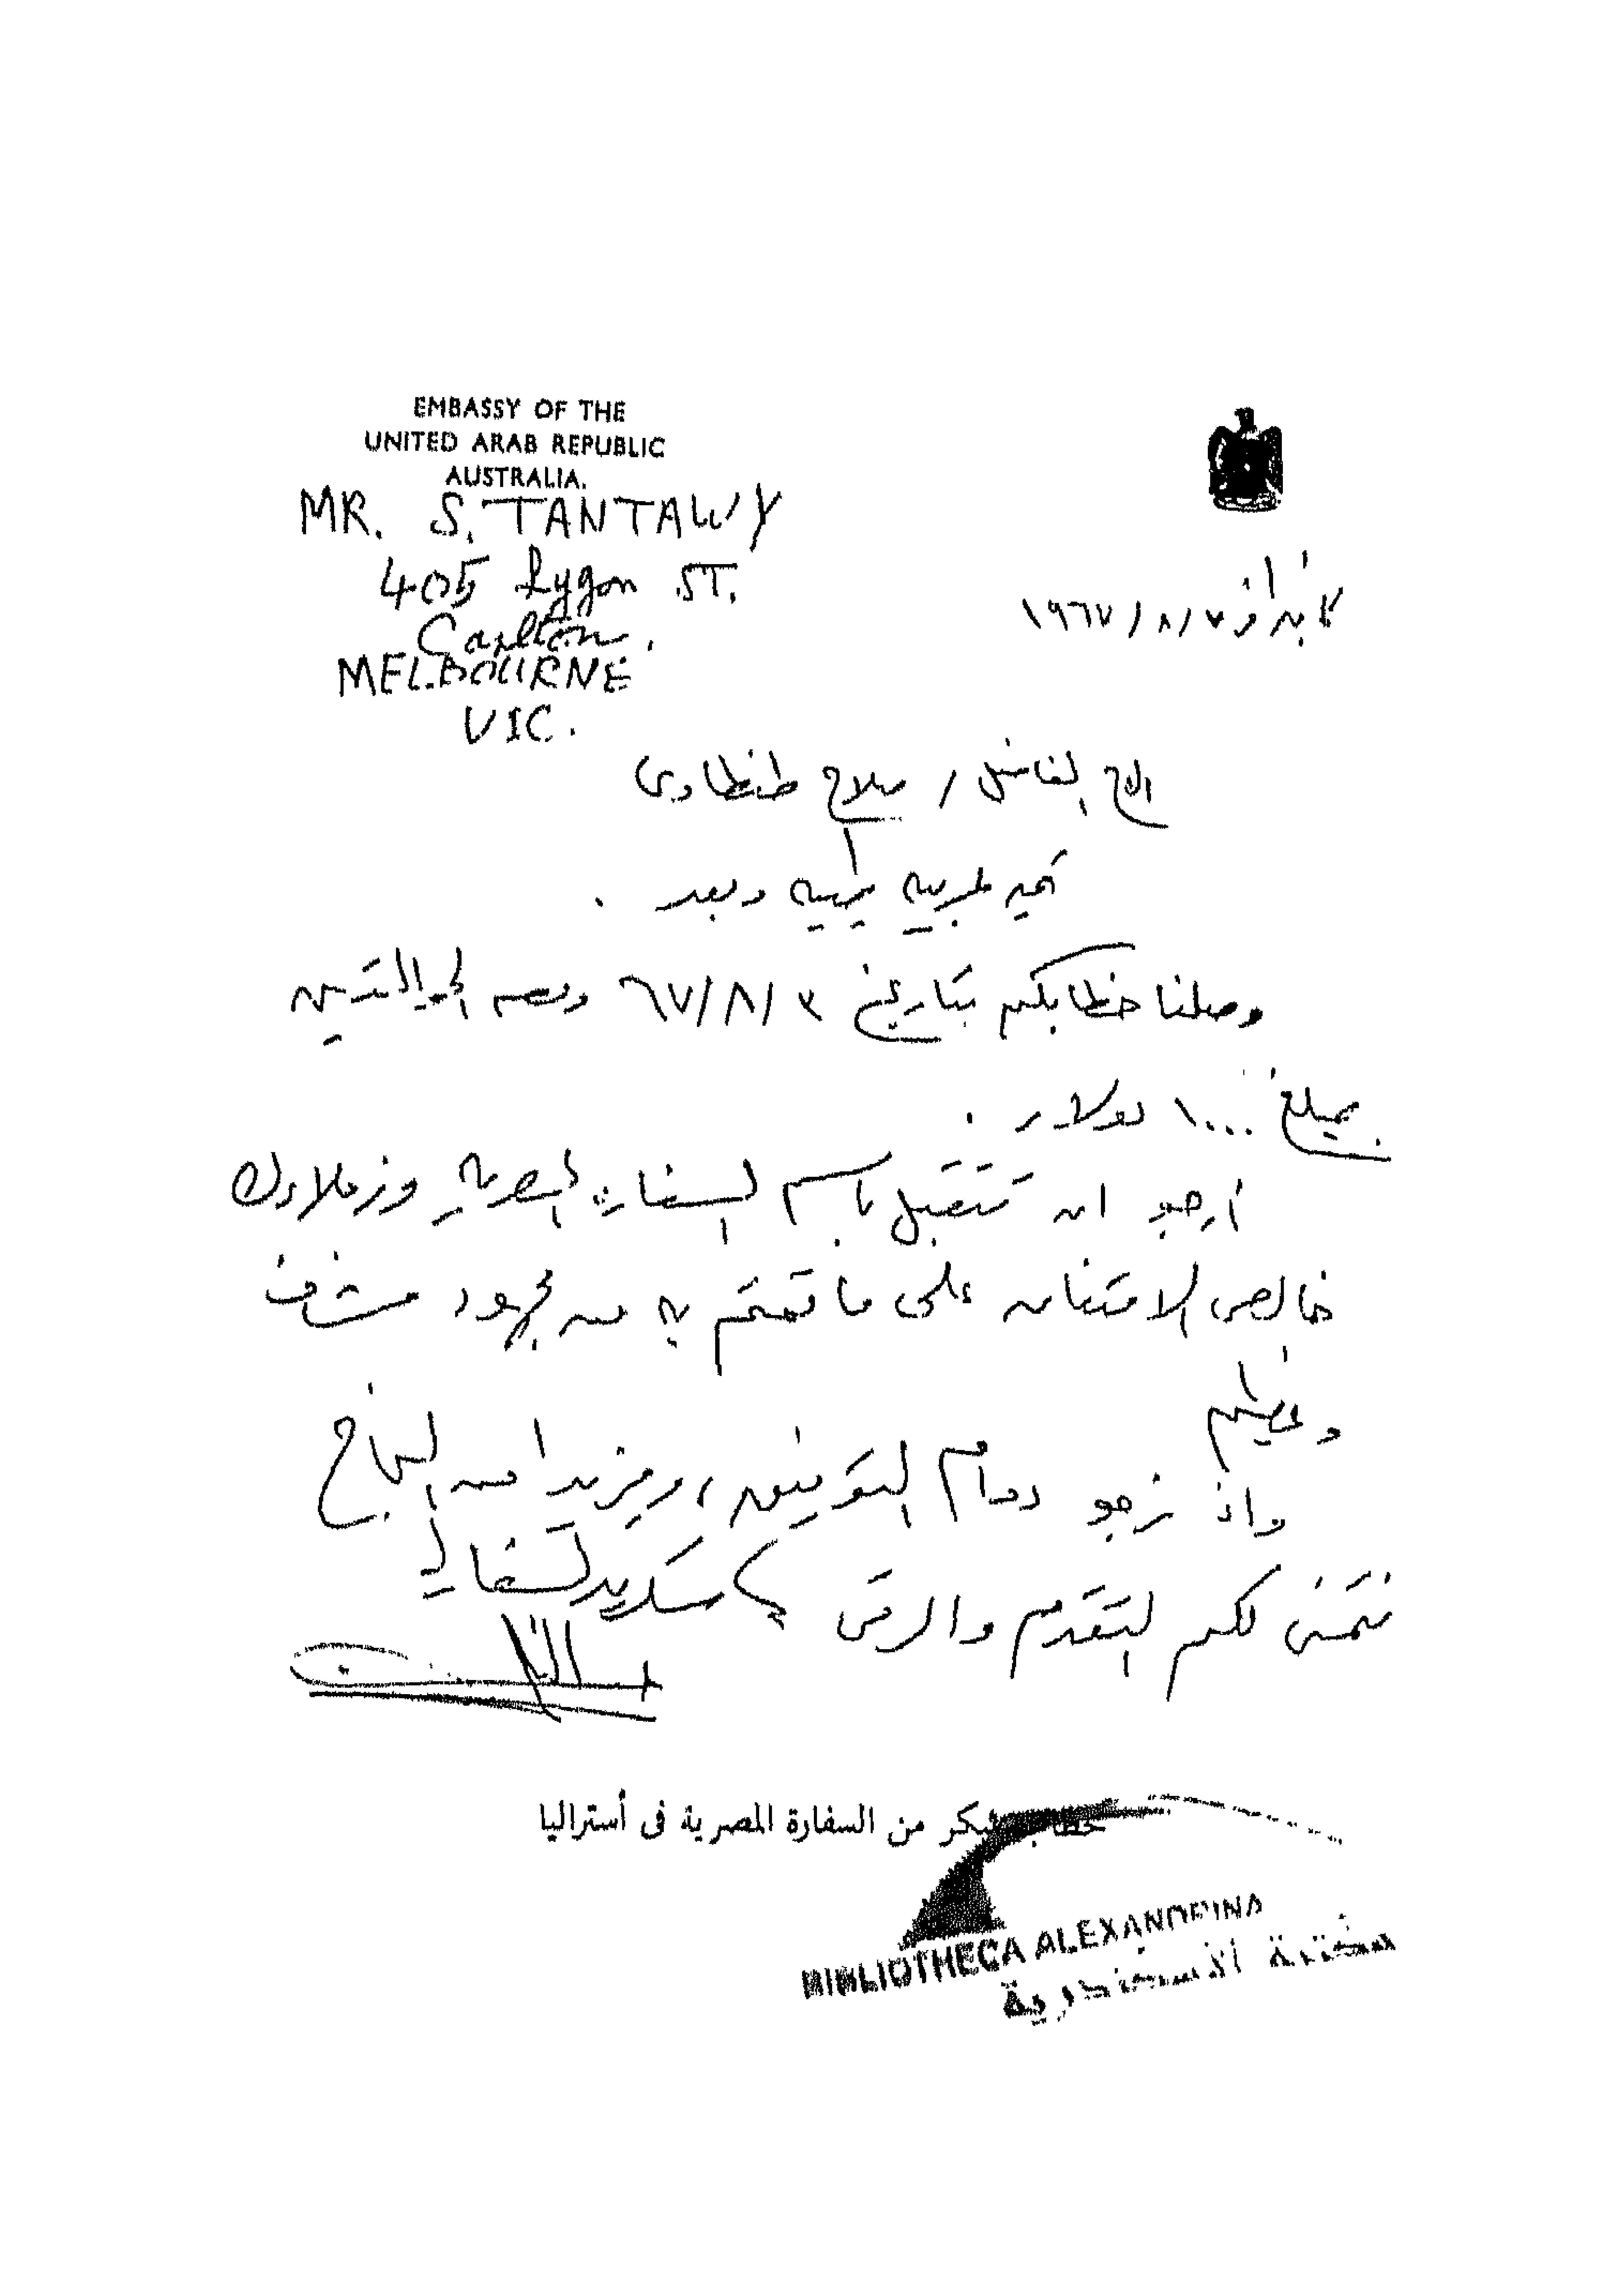 EMBASSY OF THE
UNITED ARAB REPUBLIC
AUSTRALIA.
MR. S. TANTAWY
405 Lygon ST.
Carlton.
MELBOURNE
VIC.
كانبرا في ١٩٦٧/٨/٧
الاخ الفاضل / صلاح طنطاوى
تحيه عربيه طيبه وبعد .
وصلنا خطابكم بتاريخ ٦٧/٨/٣ وبه الحوالتين
بمبلغ ١٠٠٠ دولار .
أرجو ان تتقبل باسم السفارة المصرية وزملاءك
خالص الامتنان على ما قمتم به من مجهود مشرف
وعظيم
واذ نرجو دوام التوفيق ، ومزيدا من النجاح
نتمنى لكم التقدم والرقى سكرتير السفارة
خطاب شكر من السفارة المصرية فى أستراليا
BIBLIOTHECA ALEXANDRINA
مكتبة الأسكندرية